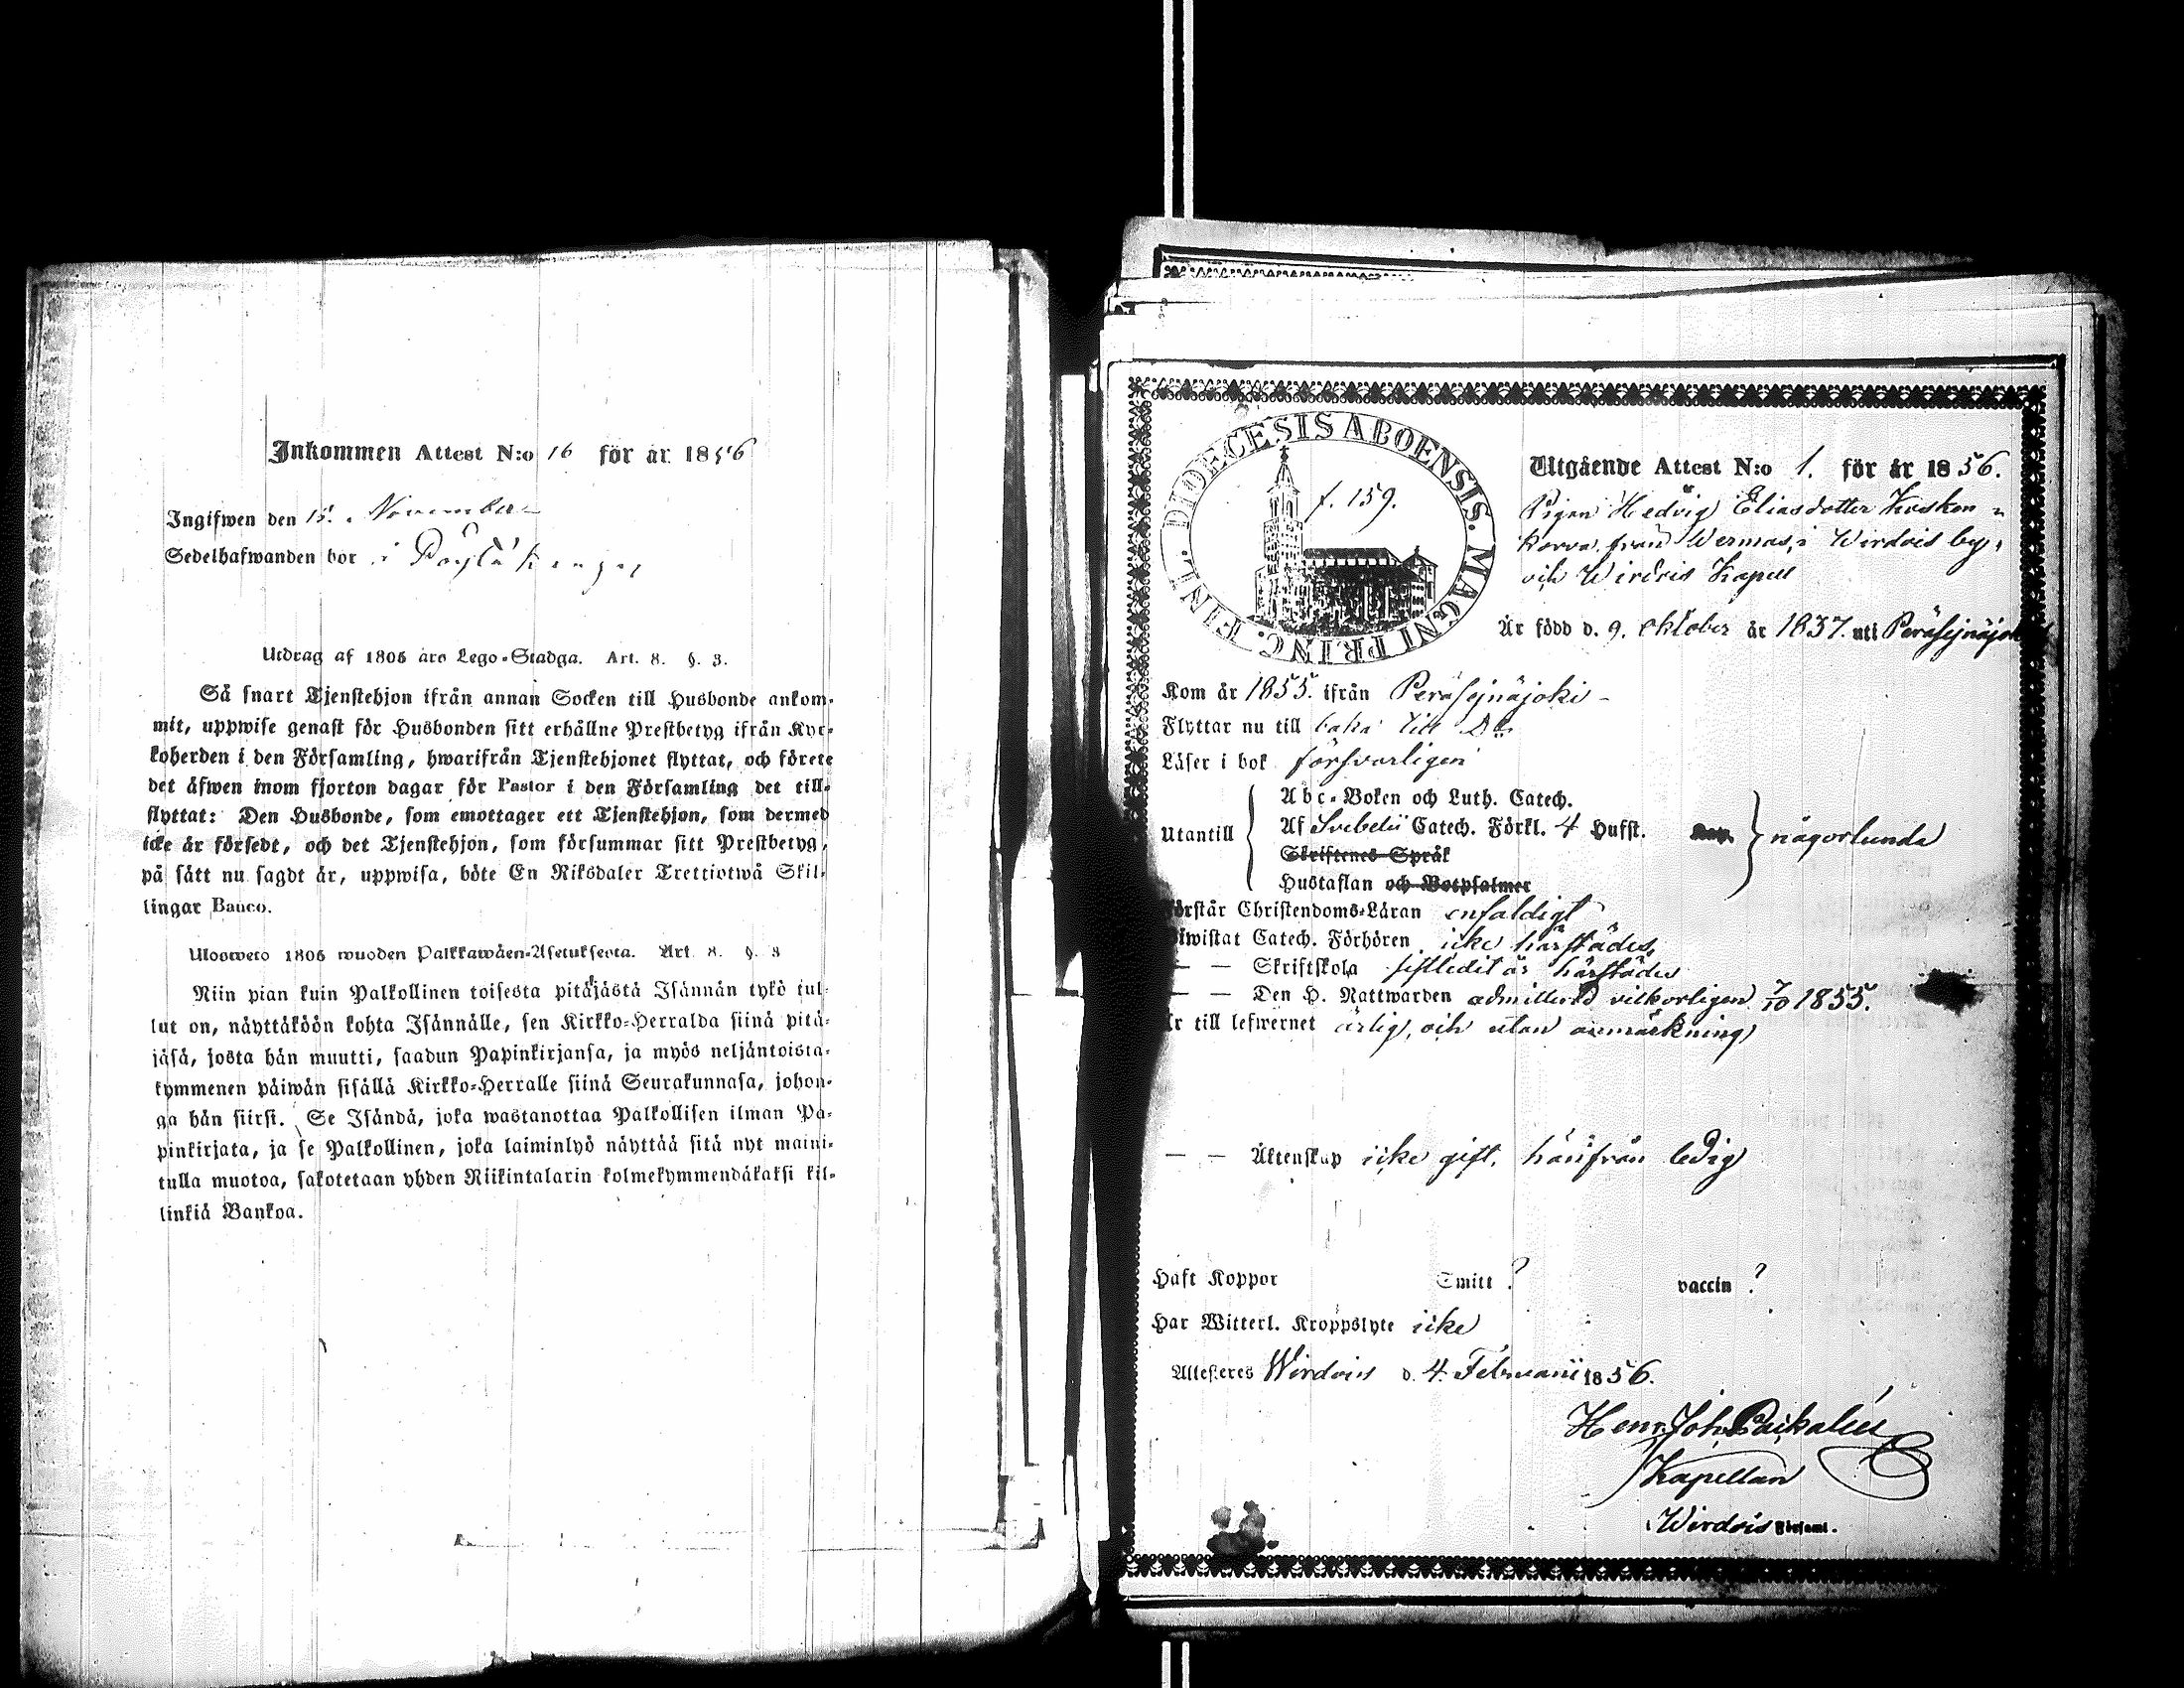 Inkommen Attest N:o 16 för år 1856
Ingifwen den 15. November
Sedelhafwanden bor i
Utdrag af 1805 års Lego-Stadga. Art. 8. §. 3.
Så snart Tjenstehjon ifrån annan Socken till Husbonde ankom-
mit, uppwise genast för Husbonden sitt erhållne Prestbetyg ifrån Kyr-
koherden i den Församling, hwarifrån Tjenstehjonet flyttat, och förete
det äfwen inom fjorton dagar för Pastor i den Församling det till-
flyttat: Den Husbonde, som emottager ett Tjenstehjon, som dermed
icke är försedt, och det Tjenstehjon, som försummar sitt Prestbetyg,
på sätt nu sagdt är, uppwisa, böte En Riksdaler Trettiotwå Skil-
lingar Banco.
Ulosweto 1805 wuoden Palkkawäen-Asetuksesta. Art. 8. §. 3
Niin pian kuin Palkollinen toisesta pitäjästä Isännän tykö tul-
lut on, näyttäköön kohta Isännälle, sen Kirkko-Herralda siinä pitä-
jäsä, josta hän muutti, saadun Papinkirjansa, ja myös neljäntoista-
kymmenen päiwän sisällä Kirkko-Herralle siinä Seurakunnasa, johon-
ga hän siirsi. Se Isändä, joka wastanottaa Palkollisen ilman Pa-
pinkirjata, ja se Palkollinen, joka laiminlyö näyttää sitä nyt maini-
tulla muotoa, sakotetaan yhden Riikintalarin kolmekymmendäkaksi kil-
linkiä Bankoa.
DIOECESIS ABOENSIS. MAGNI PRINC. FINL.
f. 159.
Utgående Attest N:o 1. för år 1856.
Pigan Hedvig Eliasdotter Kosken-
korva från Wermas, i Wirdois by,
och Wirdois Kapell
Är född d. 9. oktober år 1837. uti Peräsejnäjoki
Kom år 1855. ifrån Peräsejnäjoki
Flyttar nu till baka till Do
Läser i bok försvarligen
Utantill
Abc-Boken och Luth. Catech.
Af Svebelii Catech. Förkl. 4 Hufst. Kap. någorlunda
Skriftenes Språk
Hustaflan och Botpsalmer
Förstår Christendoms-Läran enfaldigt
Biwistat Catech. Förhören icke härstädes,
— — Skriftskola härstädes
— — Den H. Nattwarden admitterad vilkorligen 7/10 1855.
Är till lefwernet ärlig, och utan anmärkning
— — Äktenskap icke gift, härifrån ledig
Haft Koppor Smitt ? vaccin ?
Har Witterl. Kroppslyte icke
Attesteres Wirdois d. 4. Februarii 1856.
Henr. Joh.
Kapellan
Wirdois Församl.